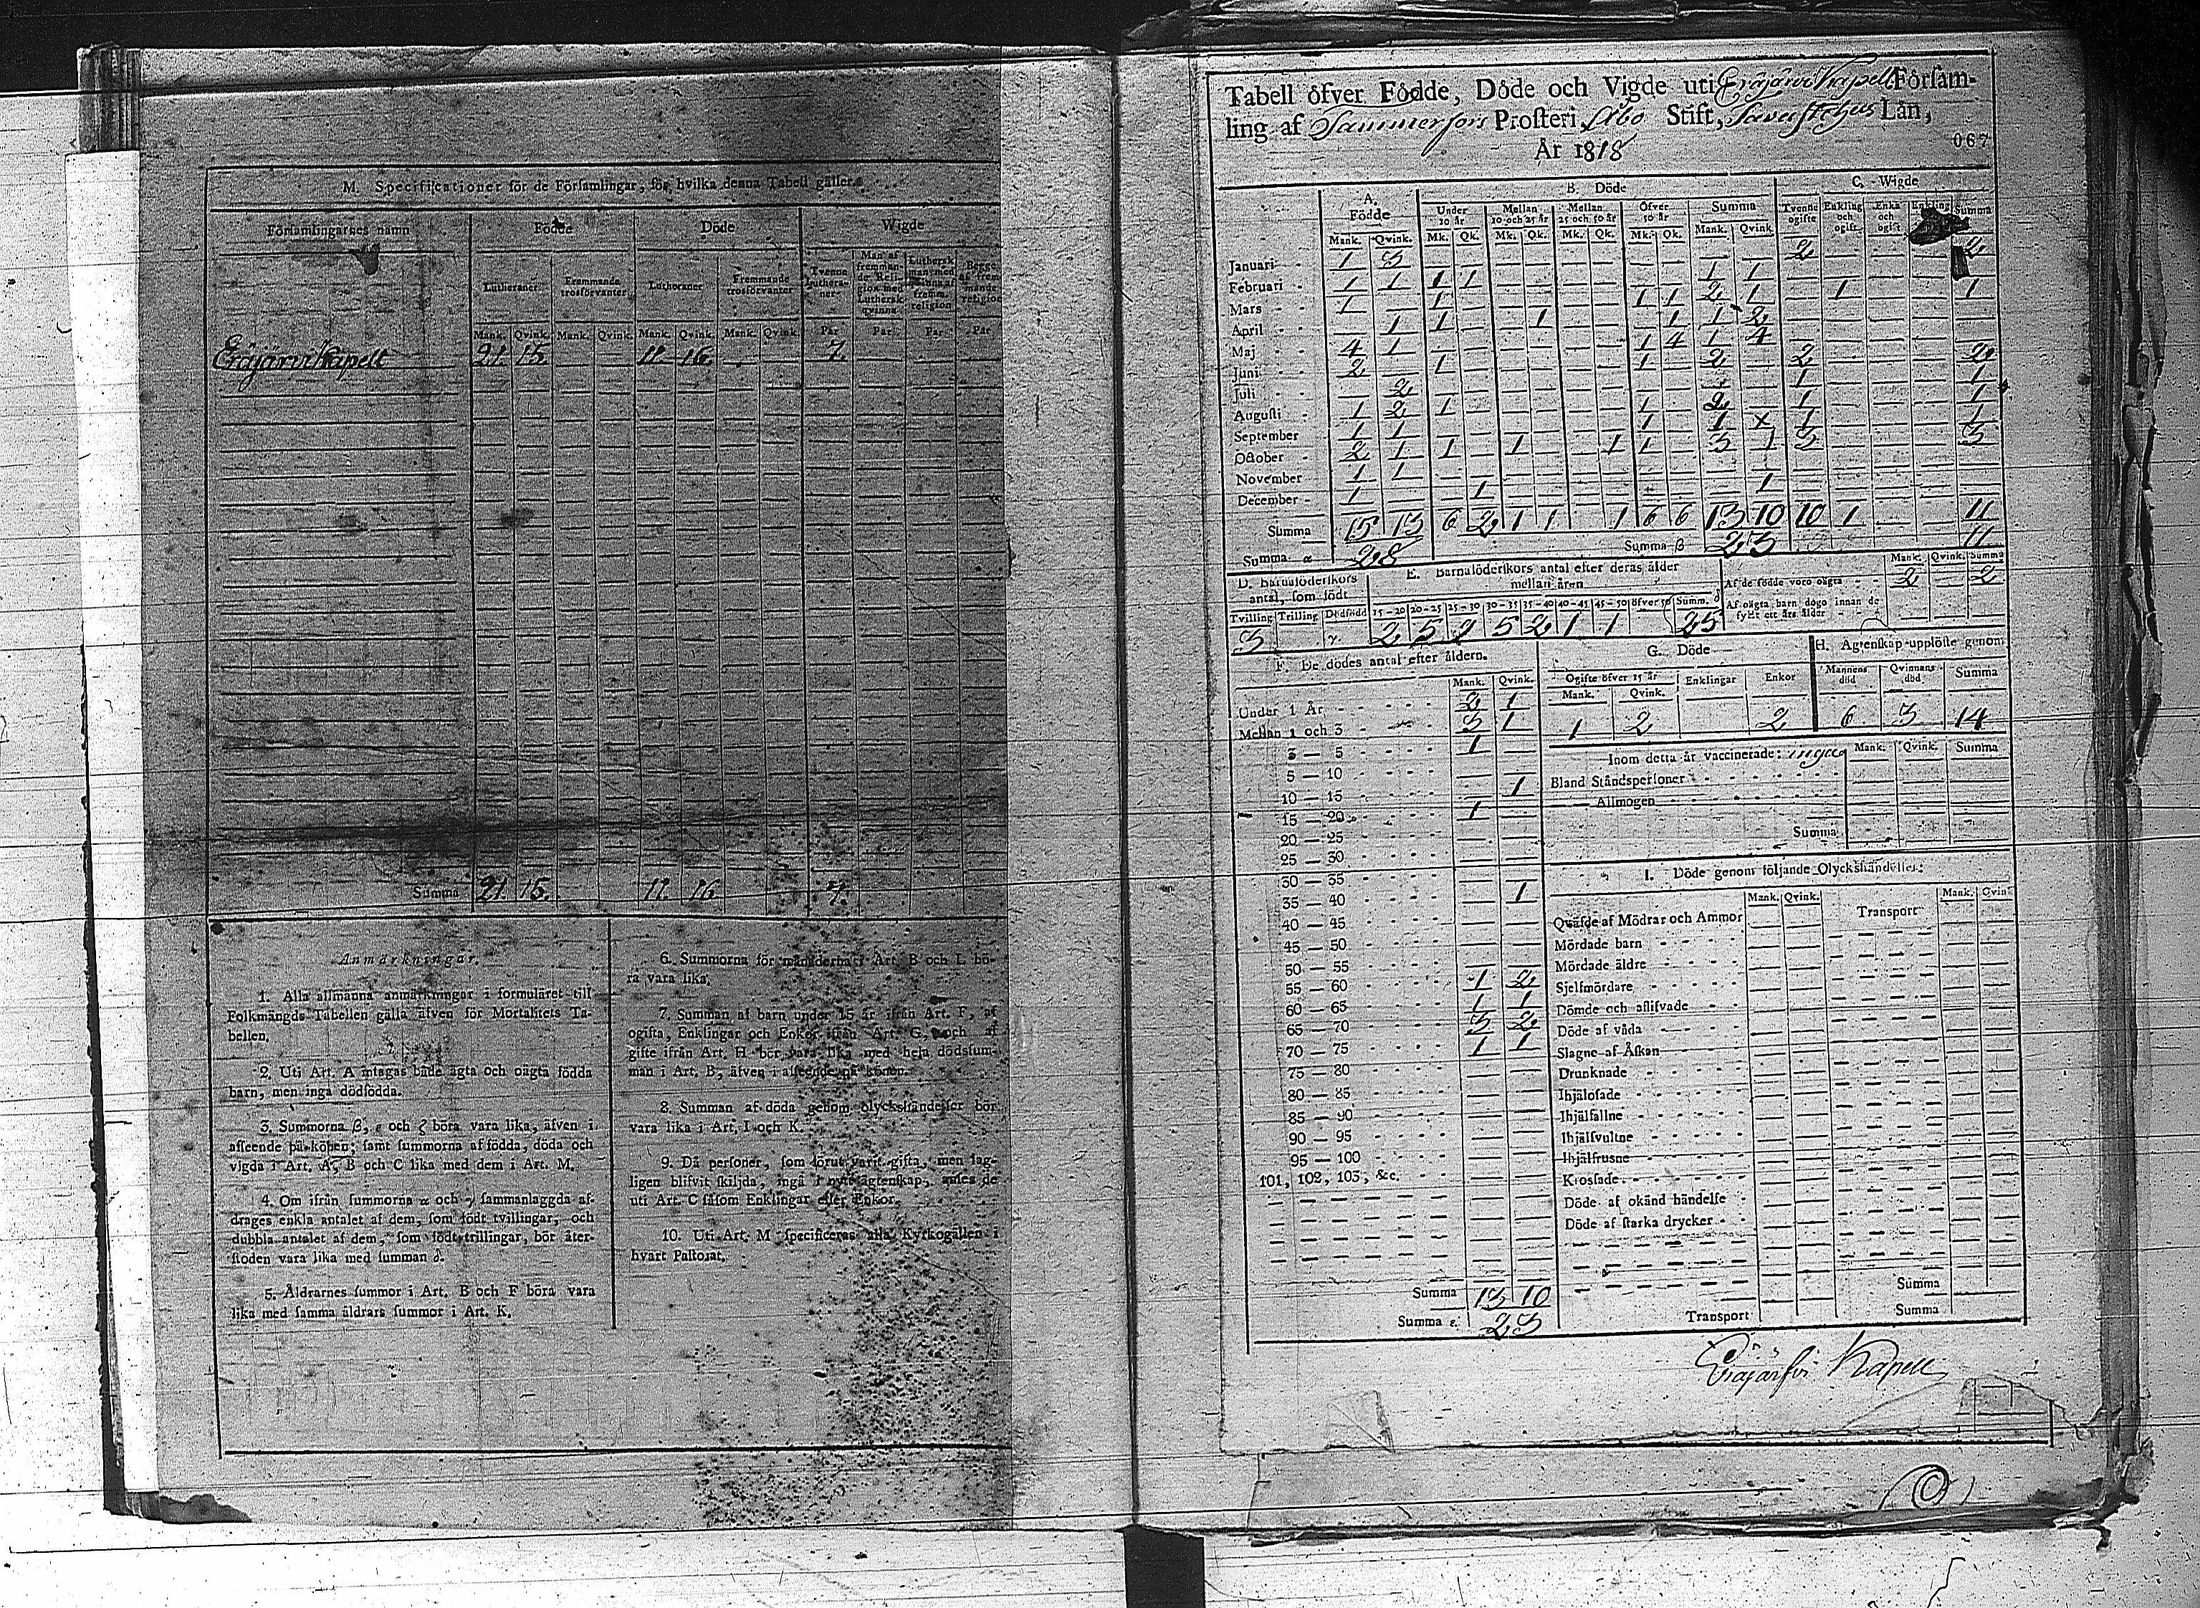 M. Specificationer för de Församlingar, för hvilka denna Tabell gäller.
Församlingarnes namn Födde Döde Wigde
Lutheraner Fremmande trosförvanter Lutheraner Fremmande trosförvanter Tvenne Lutheraner Man af fremmande Religion med Luthersk qvinna Luthersk man med qvinna af fremm. religion Begge af fremmande religion
Mank. Qvink. Mank. Qvink. Mank. Qvink. Mank. Qvink. Par Par Par Par
Eräjärvi Kapell 21. 15. 11. 16. 7.
Summa 21. 15. 11. 16 7.
Anmärkningar.
1. Alla allmänna anmärkningar i formuläret till
Folkmängds Tabellen gälla äfven för Mortalitets Ta-
bellen.
2. Uti Art. A intagas både ägta och oägta födda
barn, men inga dödfödda.
3. Summorna β, ε och ζ böra vara lika, äfven i
afseende på könen; samt summorna af födda, döda och
vigda i Art. A, B och C lika med dem i Art. M.
4. Om ifrån summorna α och γ sammanlaggda af-
drages enkla antalet af dem, som födt tvillingar, och
dubbla antalet af dem, som födt trillingar, bör åter-
stoden vara lika med summan δ.
5. Åldrarnes summor i Art. B och F böra vara
lika med samma åldrars summor i Art. K.
6. Summorna för månaderna i Art. B och L bö-
ra vara lika.
7. Summan af barn under 15 år ifrån Art. F, af
ogifta, Enklingar och Enkor ifrån Art. G, och af
gifte ifrån Art. H bör vara lika med hela dödssum-
man i Art. B, äfven i afseende på könen.
8. Summan af döda genom olyckshändelser bör
vara lika i Art. I och K.
9. Då personer, som förut varit gifta, men lag-
ligen blifvit skiljda, ingå i nytt ägtenskap, antes de
uti Art. C såsom Enklingar eller Enkor.
10. Uti Art. M specificeras alla Kyrkogällen i
hvart Pastorat.
Tabell öfver Födde, Döde och Vigde uti Eräjärvi Kapell Försam-
ling af Tammerfors Prosteri Åbo Stift, Tavastehus Län,
År 1818
067
A. Födde B. Döde C. Wigde
Under 10 år Mellan 10 och 25 år Mellan 25 och 50 år Öfver 50 år Summa Tvenne ogifte Enkling och ogift Enka och ogift Enkling Summa
Mank. Qvink. Mk. Qk. Mk. Qk. Mk. Qk. Mk. Qk. Mank. Qvink.
Januari 1 3 2 2
Februari 1 1 1 1 1 1
Mars 1 1 1 1 2 1 1 1
April 1 1 1 1 1 2
Maj 4 1 1 4 1 4
Juni 2 1 1 2 2 2
Juli 2 1 1
Augusti 1 2 1 1 2 1 1
September 1 1 1 1 x 1 1
October 2 1 1 1 1 1 3 1 3 3
November 1 1
December 1 1 1
Summa 15 13 6 2 1 1 1 6 6 13 10 10 1 11
Summa α 28 Summa β 23 11
D. Barnaföderskors antal, som födt
Tvilling Trilling Dödfödd
3
E. Barnaföderskors antal efter deras ålder mellan åren
15-20 20-25 25-30 30-35 35-40 40-45 45-50 öfver 50 Summ. δ
2 5 5 2 1 1 25
Mank. Qvink. Summa
Af de födde voro oägta 2 2
Af oägta barn dogo innan de
fyllt ett års ålder
F. De dödes antal efter åldern.
Mank. Qvink.
Under 1 År 2 1
Mellan 1 och 3 3 1
3 — 5 1
5 — 10
10 — 15 1
15 — 20 1
20 — 25
25 — 30
30 — 35
35 — 40 1
40 — 45
45 — 50
50 — 55
55 — 60 1 2
60 — 65 1 1
65 — 70 3 2
70 — 75 1 1
75 — 80
80 — 85
85 — 90
90 — 95
95 — 100
101, 102, 103, &c.
Summa 13 10
Summa ε. 23
G. Döde
Ogifte öfver 15 år Enklingar Enkor
Mank. Qvink.
1 2 2
H. Ägtenskap upplöste genom
Mannens död Qvinnans död Summa
6 3 14
Inom detta år vaccinerade: inga Mank. Qvink. Summa
Bland Ståndspersoner
Allmogen
Summa
I. Döde genom följande Olyckshändelser:
Mank. Qvink. Transport Mank. Qvink.
Qväfde af Mödrar och Ammor
Mördade barn
Mördade äldre
Sjelfmördare
Dömde och aflifvade
Döde af våda
Slagne af Åskan
Drunknade
Ihjälosade
Ihjälfallne
Ihjälsvultne
Ihjälfrusne
Krossade
Döde af okänd händelse
Döde af starka drycker
Summa
Transport Summa
Eräjärfvi Kapell